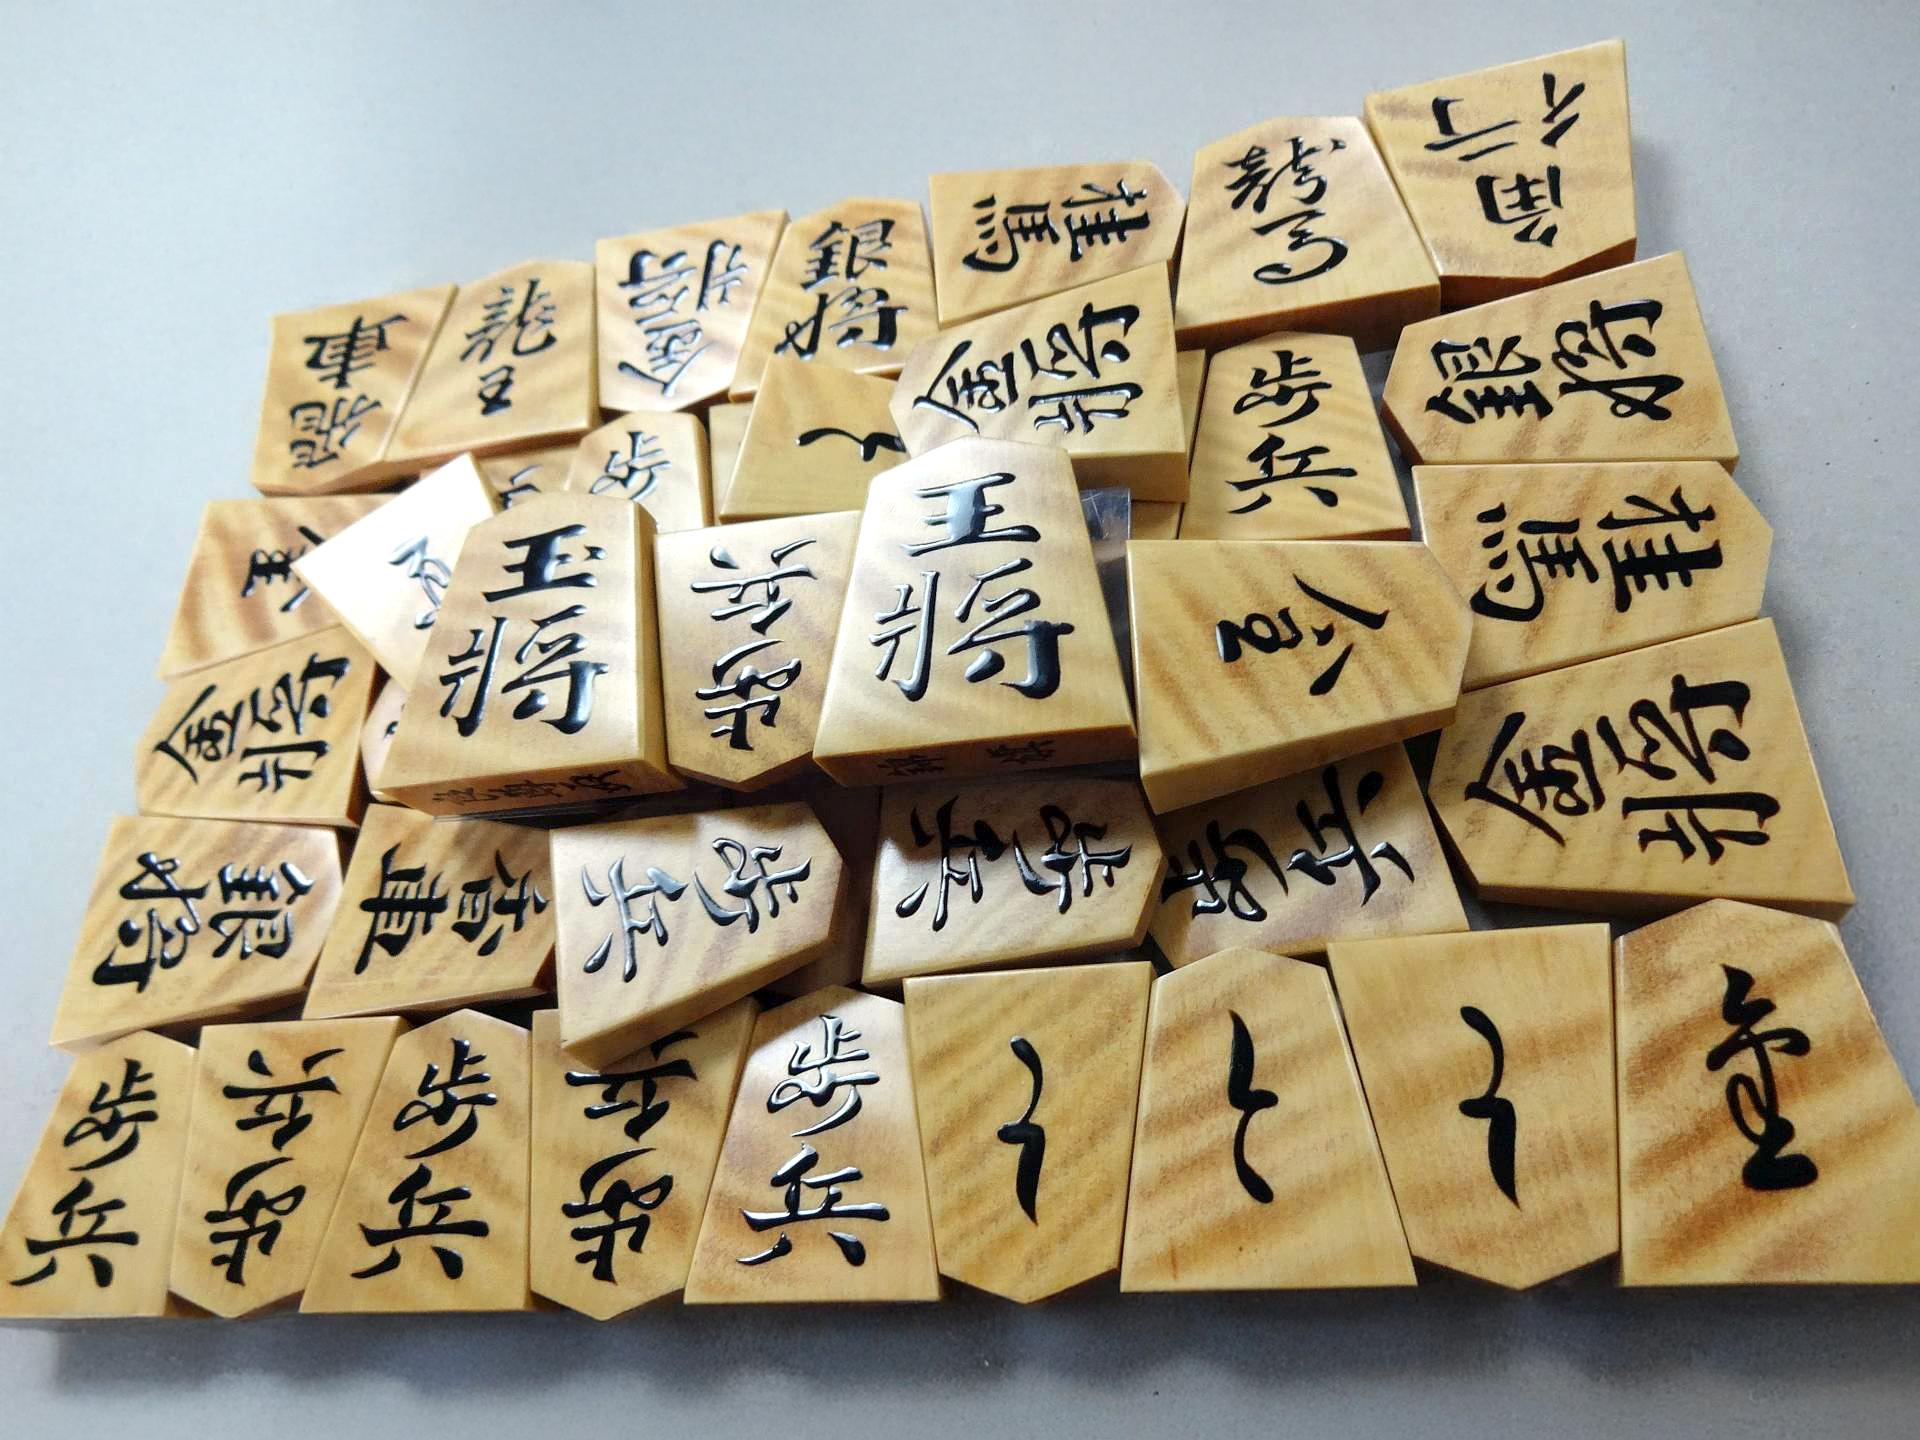 角行
龍馬
桂馬
銀将
金将
龍王
飛車
金将
歩兵
銀将
歩
と
金
桂馬
玉将
歩兵
王将
金将
金将
銀将
香車
歩兵
歩兵
歩兵
歩兵
歩兵
歩兵
歩兵
歩兵
と
と
と